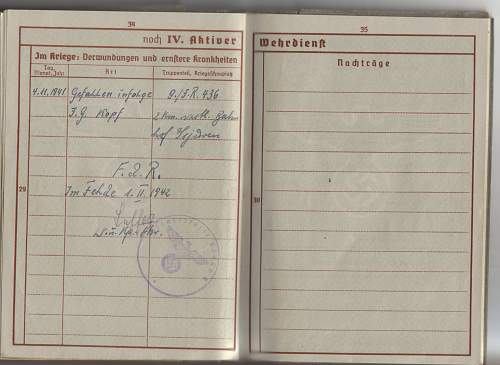 34
noch IV. Aktiver
Im Kriege: Verwundungen und ernstere Krankheiten
Tag, Monat, Jahr
Art
Truppenteil, Kriegsschauplatz
4.11.1941 Gefallen infolge 9./J.R. 436
J.G. Kopf 2 km nordl. Bahn
hof
F.d.R.
Im Felde 1.II.1942
29
35
Wehrdienst
Nachträge
30